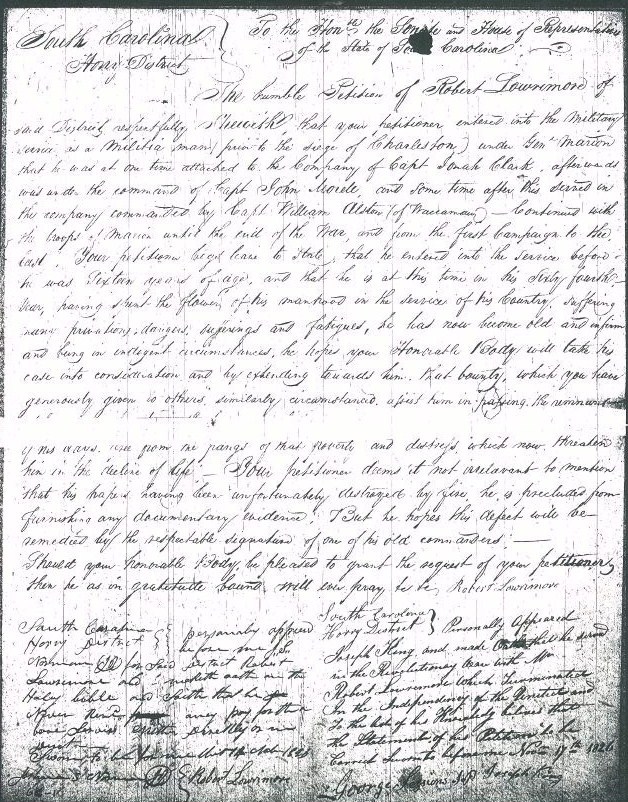 South Carolina
Horry District
To the Honble the Senate and House of Representatives
of the State of South Carolina
The humble Petition of Robert Lowrimore of
said District respectfully Sheweth that your petitioner entered into the Military
service as a Militia man (prior to the siege of Charleston) under Genl Marion
that he was at one time attached to the Company of Capt Jonah Clark, afterwards
was under the command of Capt John and some time after this served in
the company commanded by Capt William Alston (of Waccamaw) — Continued with
the troops of Marion until the end of the War, and from the first Campaign to the
last. Your petitioner begs leave to State, that he entered into the Service before
he was Sixteen years of age, and that he is at this time in his Sixty fourth
Year, having spent the flower of his manhood in the service of his Country, suffering
many privations, dangers, sufferings and fatigues, he has now become old and infirm
and being in indigent circumstances, he hopes your Honorable Body will take his
case into consideration and by extending towards him, that bounty, which you have
generously given to others, similarly circumstanced, assist him in passing the remnant
of his days, free from the pangs of that poverty and distress, which now threaten
him in the decline of life — Your petitioner deems it not irrelavant to mention
that his papers having been unfortunately destroyed by fire, he is precluded from
furnishing any documentary evidence. But he hopes this defect will be
remedied by the respectable signature of one of his old commanders. —
Should your Honorable Body, be pleased to grant the request of your petitioner,
then he as in gratitude bound will ever pray &c &c Robert Lowrimore
South Carolina
Horry District
personaly appeared
before me
for said District Robert
Lowrimore and made oath on the
Holy bible and that he
Never any pay for the
directly or in
Sworn to before me
Robert Lowrimore
South Carolina
Horry District
Personally Appeared
Joseph King, and made Oath that he served
in the Revolutionary War with Mr
Robert Lowrimore which Terminated
In the Independency of the United and
To the best of his Knowledg believes that
the Statement of his Petition to be
Correct Sworn to before me Novr 17th 1826
George Joseph King